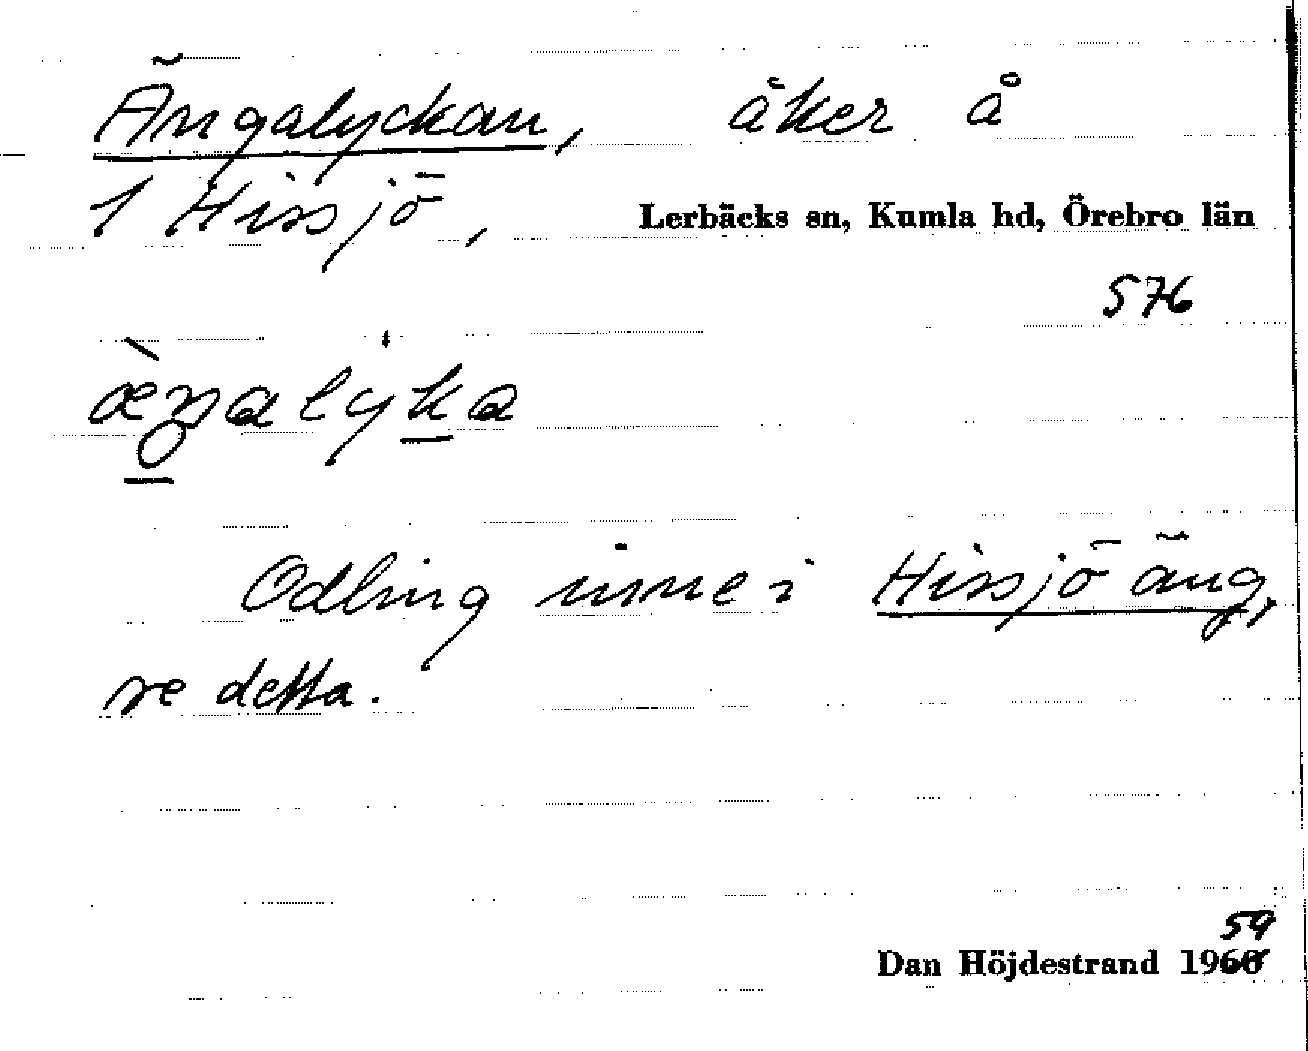 Ängalyckan, åker å
1 Hissjö, Lerbäcks sn, Kumla hd, Örebro län
576
æ̀ŋalyka
Odling inne i Hissjö äng,
se detta.
59
Dan Höjdestrand 1960